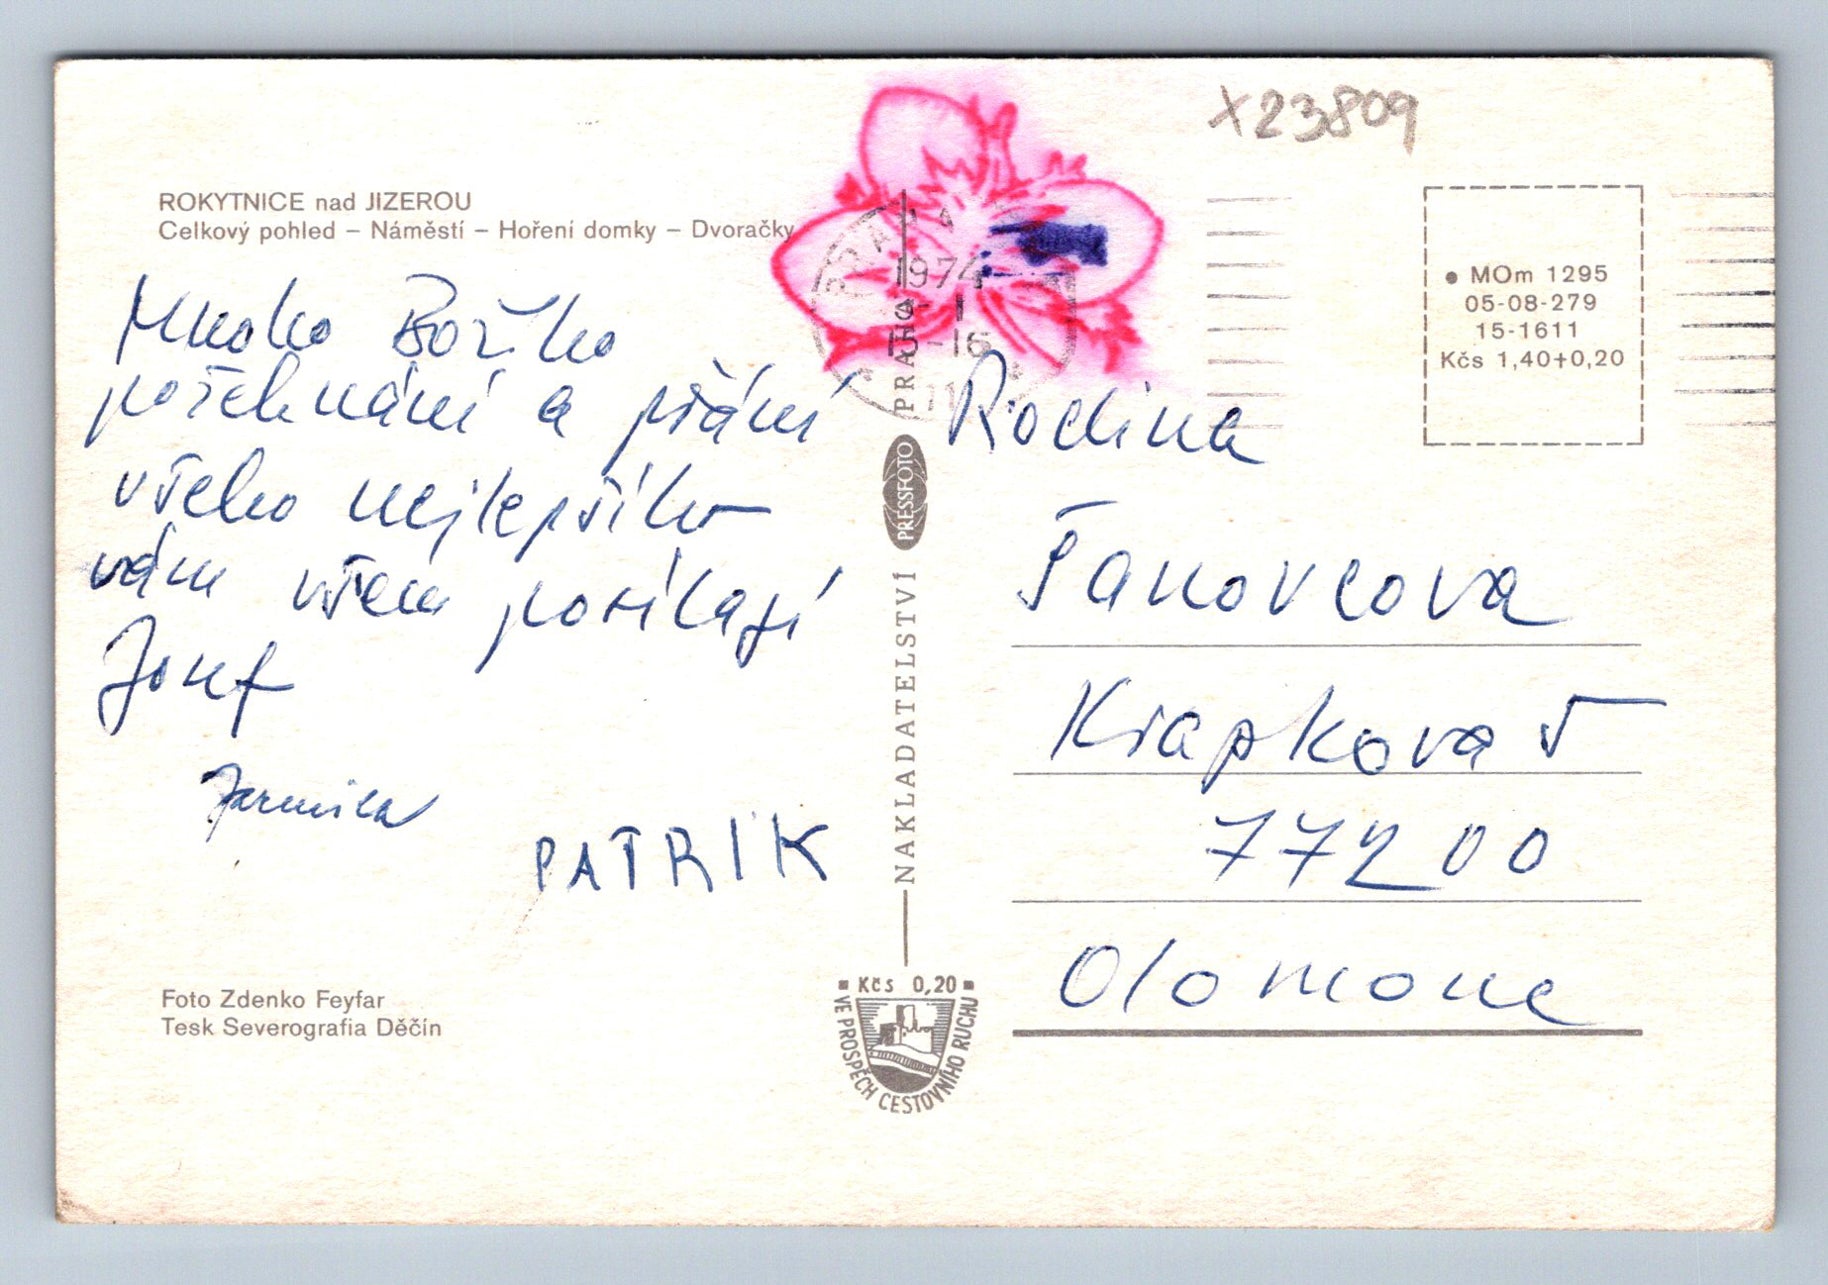 X23809
ROKYTNICE nad JIZEROU
Celkový pohled – Náměstí – Hoření domky – Dvoračky
Mnoho Božího
požehnání a přání
všeho nejlepšího
vám všem posílají
Josef
Jarmila
PATRIK
Foto Zdenko Feyfar
Tesk Severografia Děčín
PRAHA
1974
15-16
NAKLADATELSTVÍ PRESSFOTO PRAHA
Kčs 0,20
VE PROSPĚCH CESTOVNÍHO RUCHU
MOm 1295
05-08-279
15-1611
Kčs 1,40+0,20
Rodina
Krapkova 5
77200
Olomouc